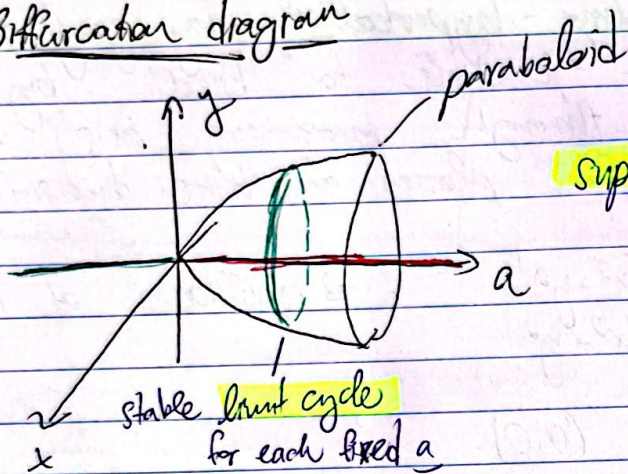 Biffurcation diagram
y
paraboloid
sup
a
stable limit cycle
for each fixed a
x